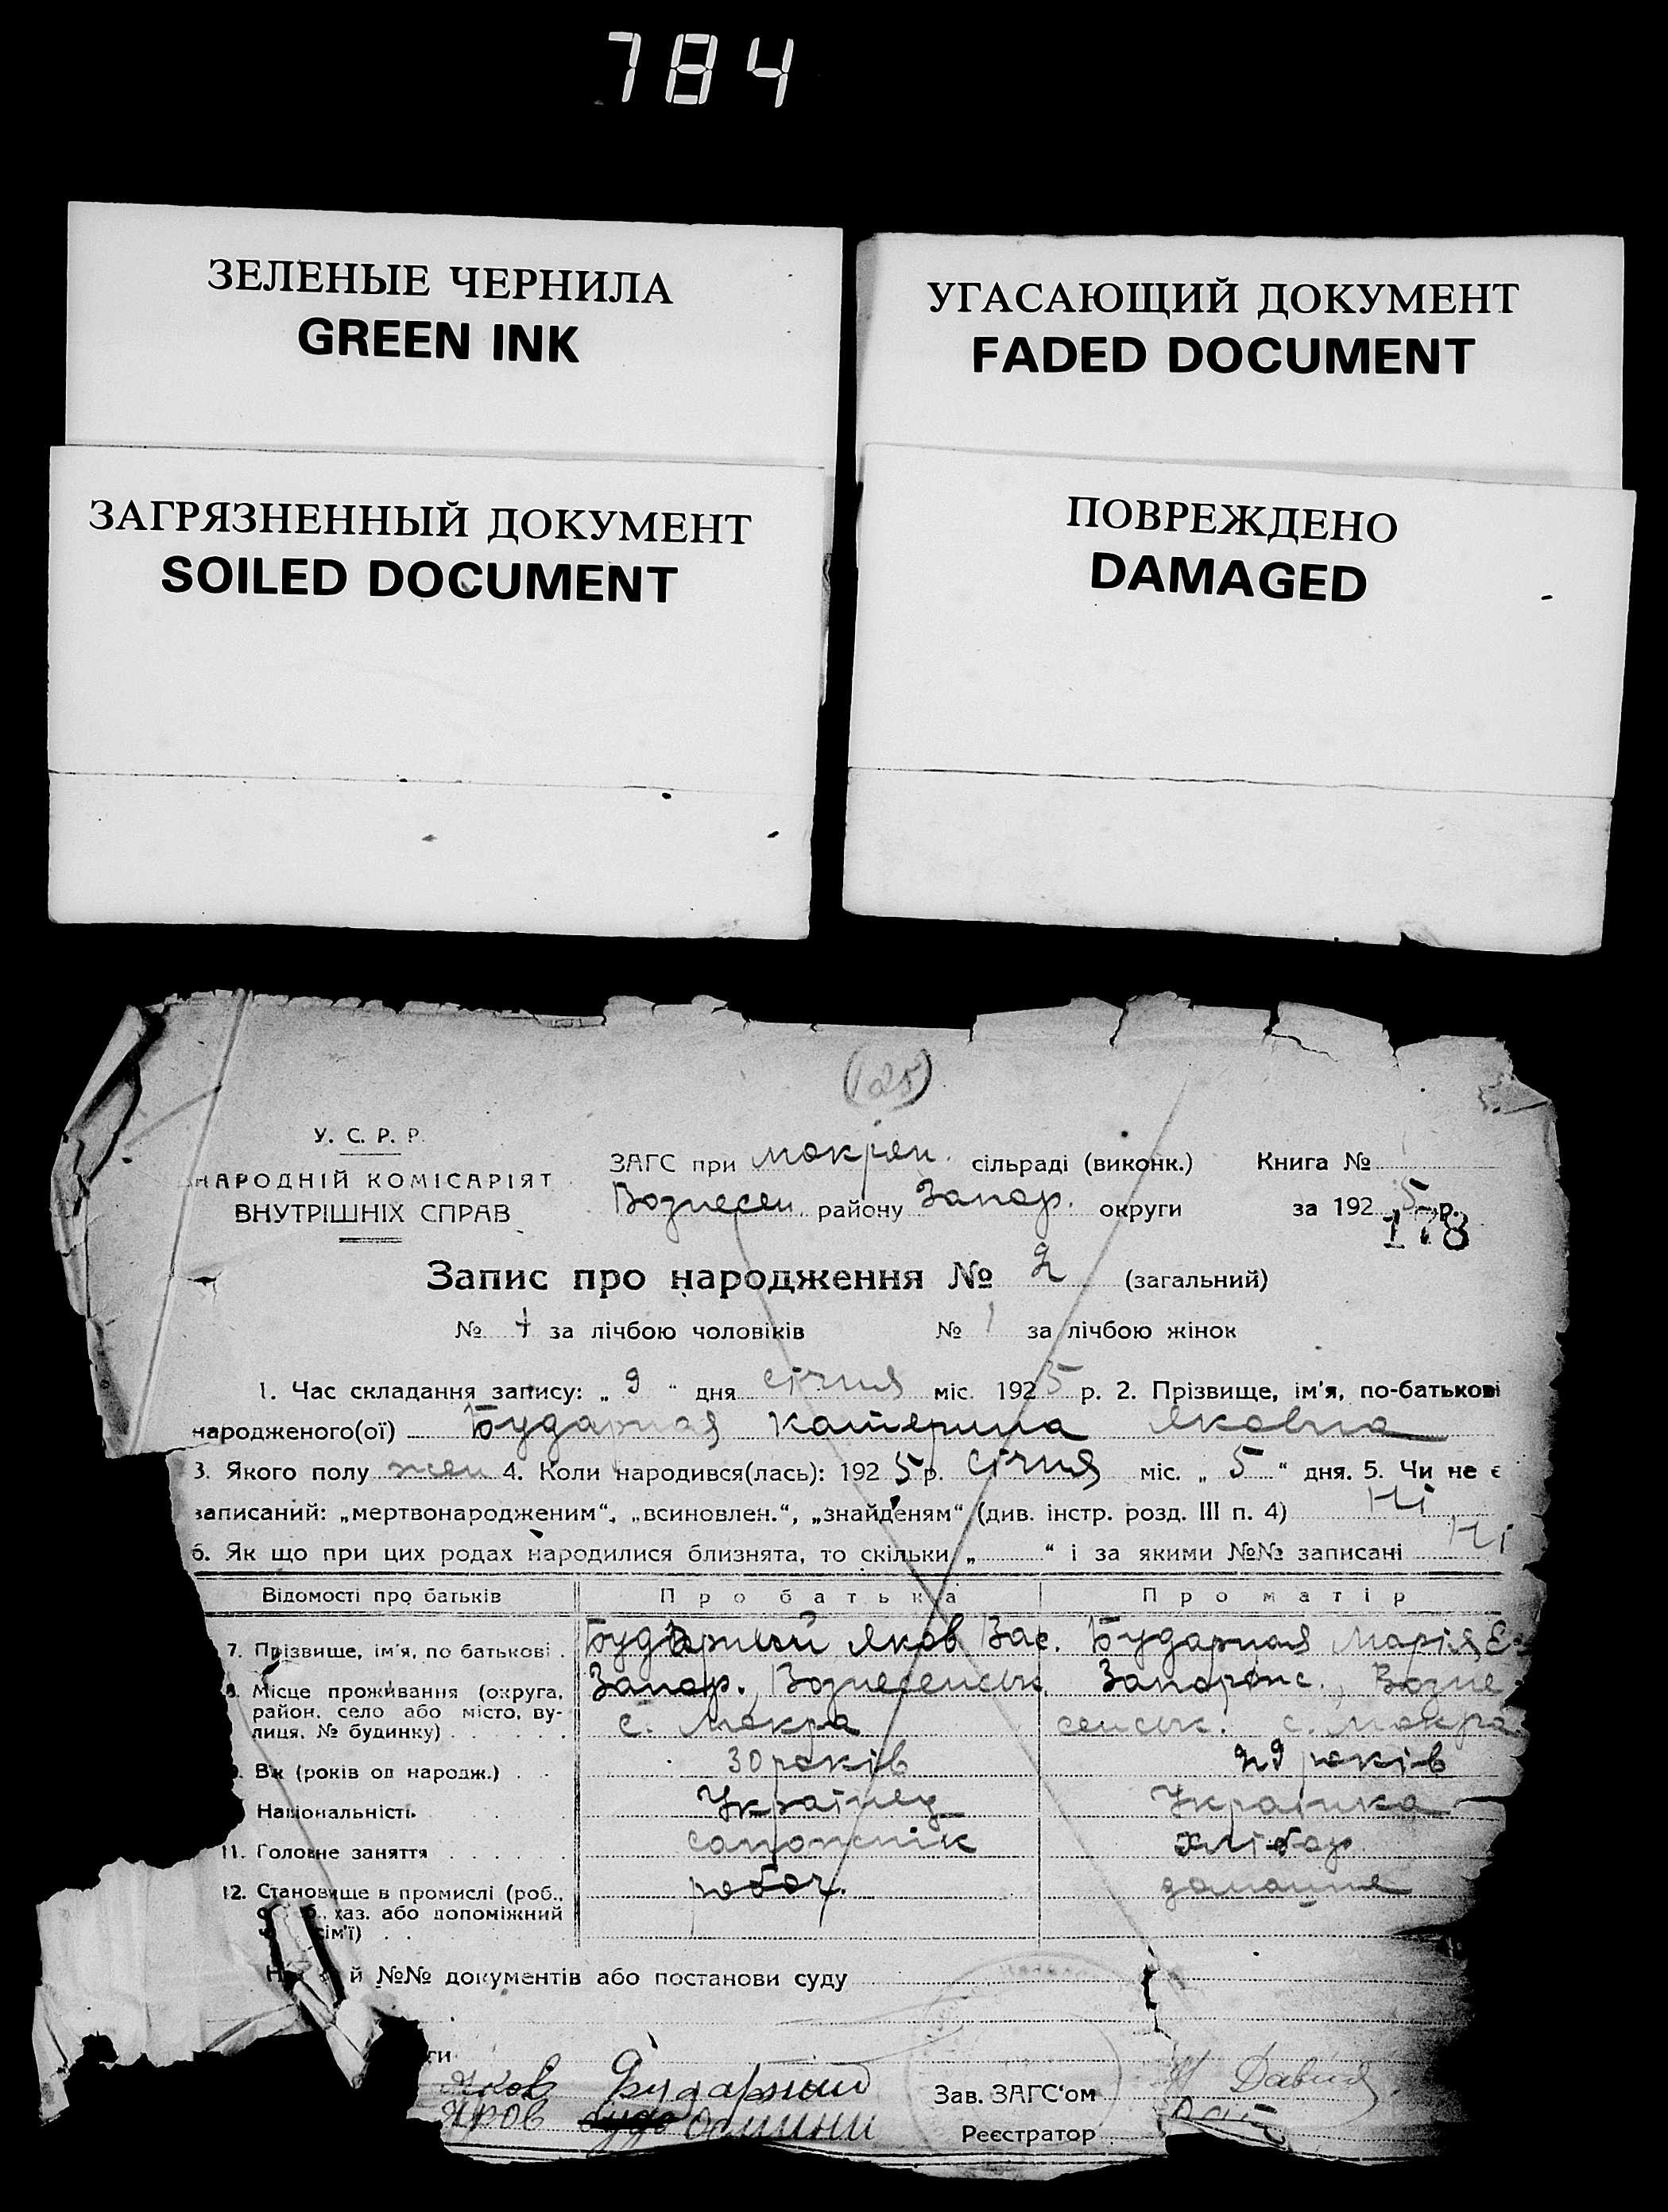 784
ЗЕЛЕНЫЕ ЧЕРНИЛА
GREEN INK
УГАСАЮЩИЙ ДОКУМЕНТ
FADED DOCUMENT
ЗАГРЯЗНЕННЫЙ ДОКУМЕНТ
SOILED DOCUMENT
ПОВРЕЖДЕНО
DAMAGED
(125)
У. С. Р. Р.
НАРОДНІЙ КОМІСАРІЯТ
ВНУТРІШНІХ СПРАВ
ЗАГС при мокрян. сільраді (виконк.) Книга №
Вознесен. району Запор. округи за 1925 р.
178
Запис про народження № 2 (загальний)
№ за лічбою чоловіків № 1 за лічбою жінок
1. Час складання запису: „ 9 “ дня січня міс. 1925 р. 2. Прізвище, ім'я, по-батькові
народженого(ої) Бударная Катерина Яковна
3. Якого полу жен 4. Коли народився(лась): 1925 р. січня міс. „ 5 “ дня. 5. Чи не є
записаний: „мертвонародженим“, „всиновлен.“, „знайденям“ (див. інстр. розд. III п. 4) Ні
6. Як що при цих родах народилися близнята, то скільки „ “ і за якими №№ записані Ні
Відомості про батьків Про батька Про матір
7. Прізвище, ім'я, по батькові . Бударний Яков Вас. Бударная Марія Є
8. Місце проживання (округа, Запор., Вознесенськ. Запоріжс., Возне
район, село або місто, ву- с. Мокра сенськ. с. Мокра
лиця, № будинку) . . . . .
9. Вік (років од народж.) . . 30 років 29 років
Національність. Українец Українка
11. Головне заняття . . . . . . сапожнік хлібор.
12. Становище в промислі (роб., робоч. домашня
хаз. або допоміжний
сім'ї) . .
й №№ документів або постанови суду
Яков Бударний
Зав. ЗАГС'ом
Реєстратор